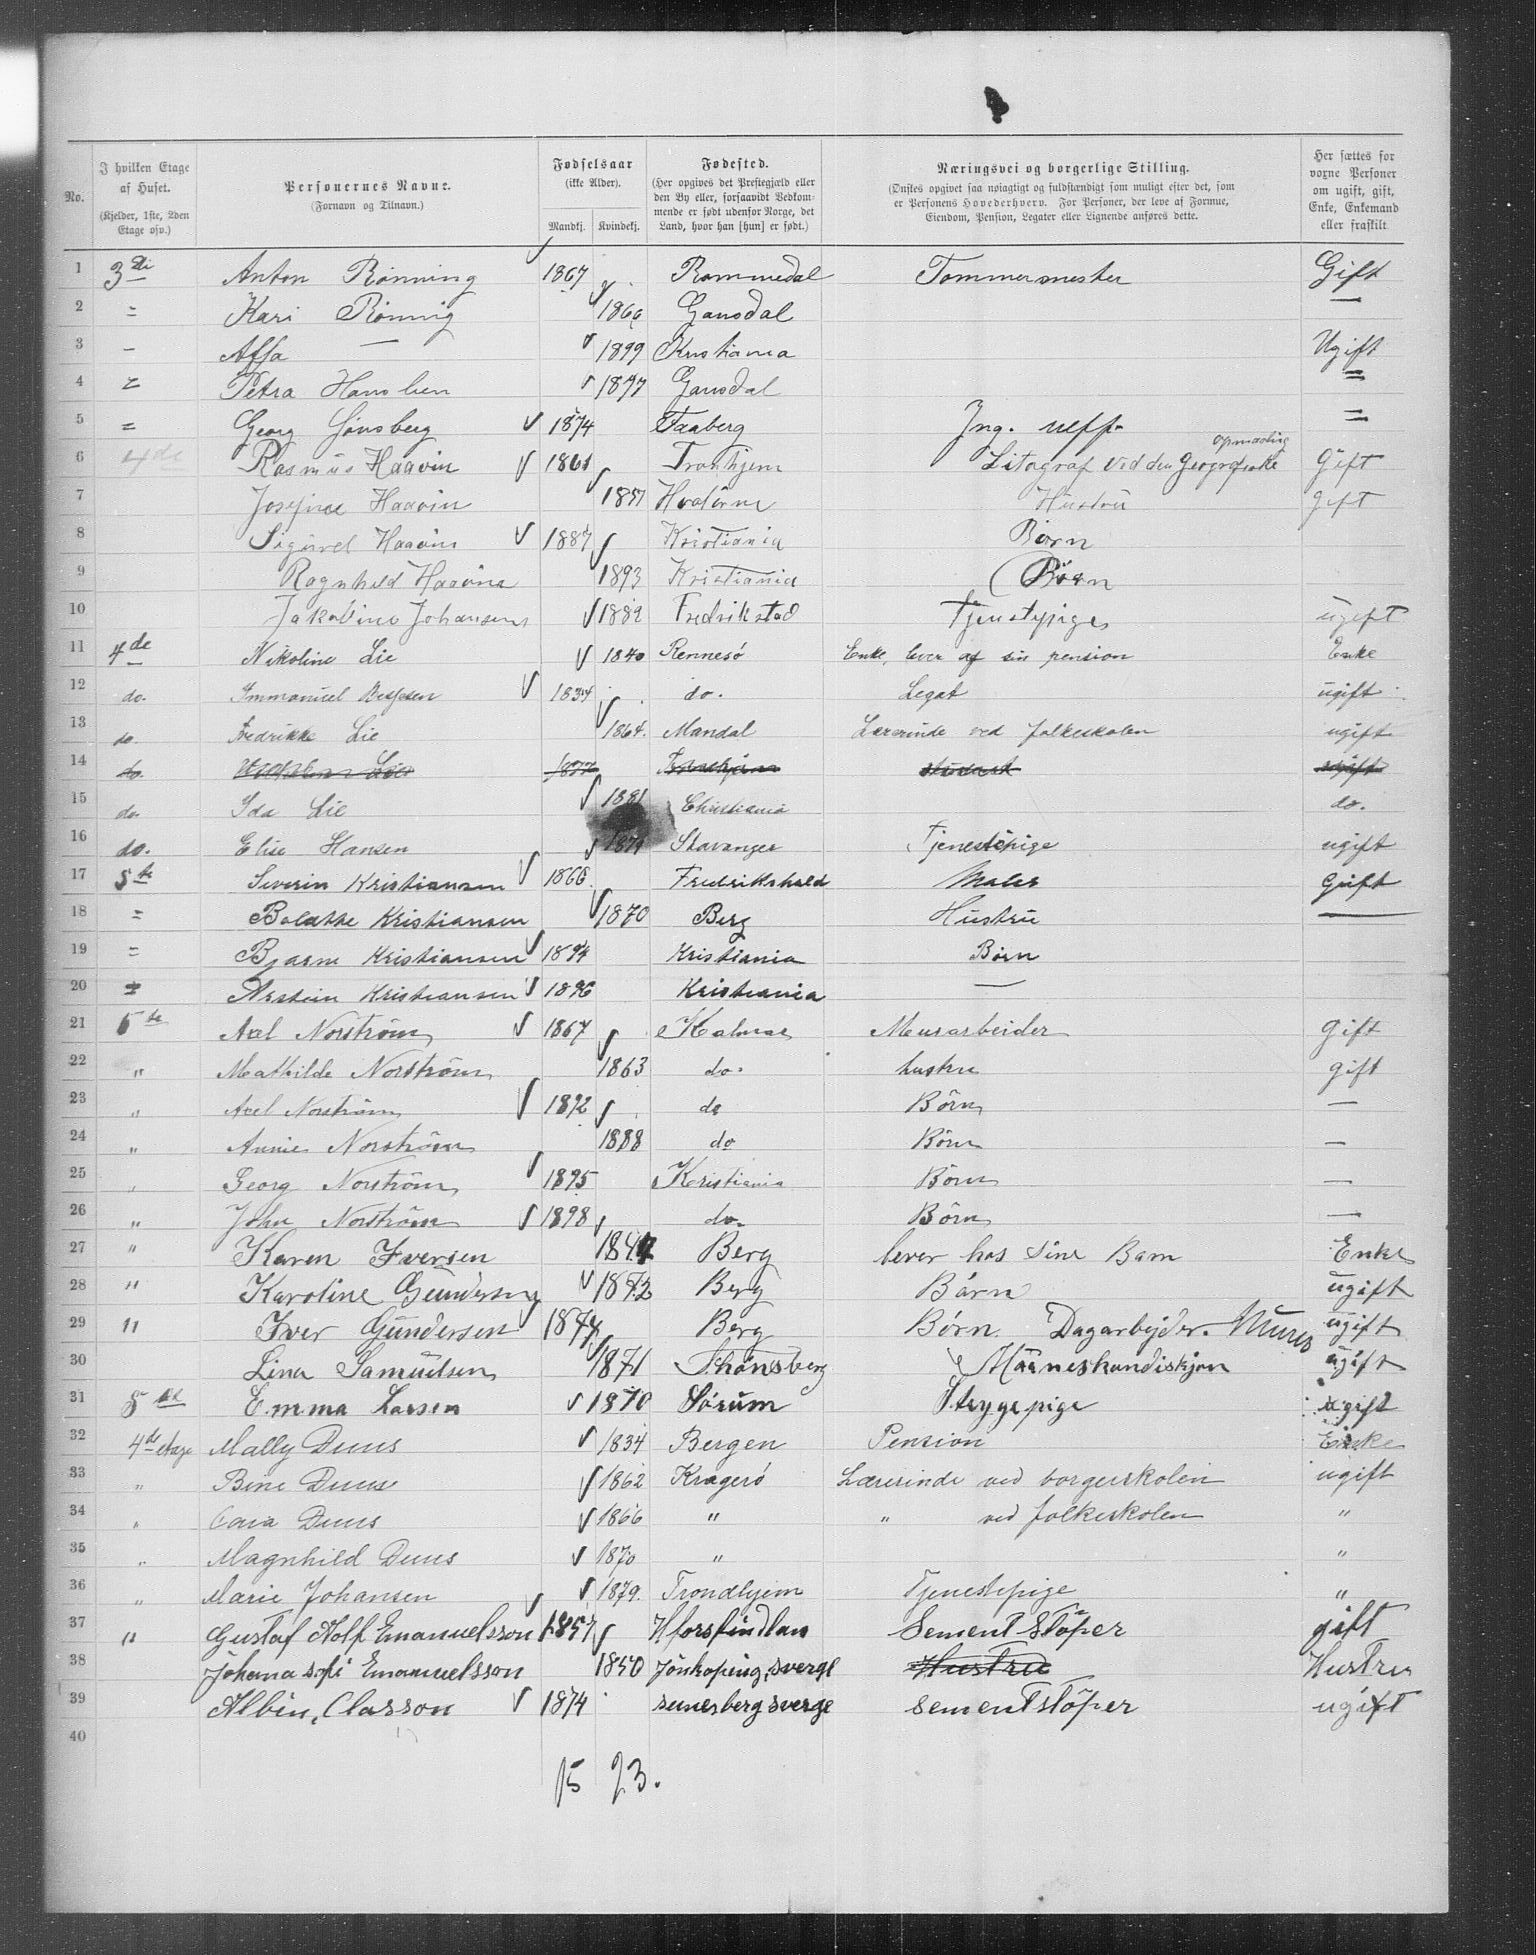 No.
I hvilken Etage af Huset. (Kjelder, 1ste, 2den Etage osv.)
Personernes Navne. (Fornavn og Tilnavn.)
Fødselsaar (ikke Alder). Mandkj. Kvindekj.
Fødested. (Her opgives det Prestegjæld eller den By eller, forsaavidt Vedkommende er født udenfor Norge, det Land, hvor han [hun] er født.)
Næringsvei og borgerlige Stilling. (Ønskes opgivet saa nøiagtigt og fuldstændigt som muligt efter det, som er Personens Hovederhverv. For Personer, der leve af Formue, Eiendom, Pension, Legater eller Lignende anføres dette.
Her sættes for voxne Personer om ugift, gift, Enke, Enkemand eller fraskilt
1 3die Anton Rønning 1867 Rommedal Tømmermester Gift
2 = Kari Rønning 1866 Gausdal —
3 - Affa — 1899 Kristiania Ugift
4 = Petra Hanslien 1877 Gausdal =
5 = Georg Lønsberg 1874 Faaberg Ing. =
6 4de Rasmus Haavin 1861 Tronhjem Litograf ved den Geografiske opmaaling Gift
7 Josefine Haavin 1857 Hvalørne Hustru gift
8 Sigurd Haavin 1887 Kristiania Børn
9 Ragnhild Haavin 1893 Kristiania Børn
10 Jakobine Johansen 1882 Fredrikstad Tjenstepige ugift
11 4de Nikoline Lie 1840 Rennesø Enke, lever af sin pension Enke
12 do. Immanuel 1834 do. Legat ugift
13 do. Fredrikke Lie 1864. Mandal Lærerinde ved folkeskolen ugift
14 do. Lie 1877 student ugift
15 do. Ida Lie 1881 Christiania do.
16 do. Elise Hansen 1879 Stavanger Tjenestepige ugift
17 5te Severin Kristiansen 1866 Fredrikshald Maler Gift
18 = Bolette Kristiansen 1870 Berg Hustru —
19 = Bjarne Kristiansen 1894 Kristiania Børn
20 = Kristiansen 1896 Kristiania —
21 5te Axel Norström 1867 Kalmar Murarbeider gift
22 " Mathilde Norström 1863 do. hustru gift
23 " Axel Norström 1892 do Börn —
24 " Annie Norström 1888 do Börn —
25 " Georg Norström 1895 Kristiania Börn —
26 " John Norström 1898 do. Börn —
27 " Karen Iversen 1844 Berg lever hos sine Barn Enke
28 " Karoline Gundersen 1872 Berg Börn ugift
29 " Iver Gundersen 1877 Berg Børn. Dagarbejder. Murer ugift
30 Lina Samuelsen 1871 ugift
31 5te Emma Larsen 1870 Sørum Strygepige ugift
32 4de etage Mally Duus 1834 Bergen Pension Enke
33 " Bine Duus 1862 Kragerø Lærerinde ved borgerskolen ugift
34 " Caia Duus 1866 " " ved folkeskolen "
35 " Magnhild Duus 1870 " "
36 " Marie Johansen 1879. Trondhjem Tjenestepige "
37 " Gustaf Adolf Emanuelsson 1857 Sement Stöper gift
38 Johanna Sofi Emanuelsson 1850 Jönkoping, sverge Hustru Hustru
39 Albin, Classon 1874 sverge sement stöper ugift
40
15 23.